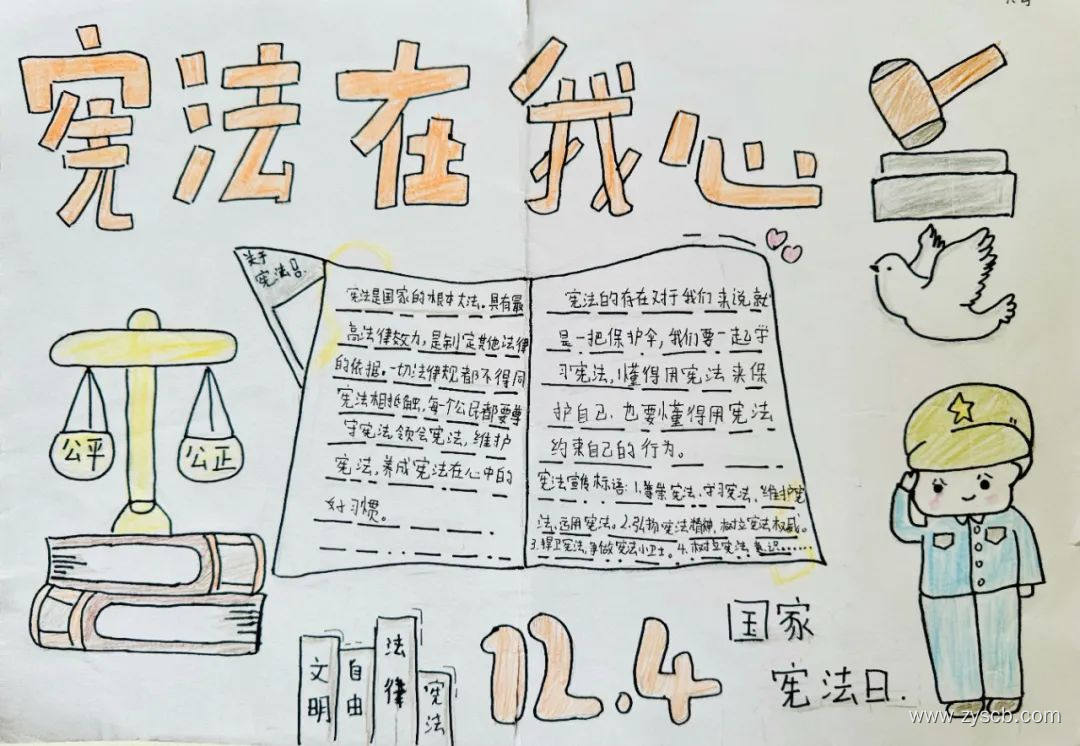 宪法在我心
关于
宪法日.
宪法是国家的根本大法。具有最
高法律效力,是制定其他法律
的依据。一切法律规都不得同
宪法相抵触,每个公民都要尊
守宪法,领会宪法,维护
宪法,养成宪法在心中的
好习惯。
宪法的存在对于我们来说就
是一把保护伞,我们要一起学
习宪法,懂得用宪法来保
护自己.也要懂得用宪法
约束自己的行为。
宪法宣传标语:1.尊崇宪法、学习宪法、维护宪
法、运用宪法。2.弘扬宪法精神,树立宪法权威。
3.捍卫宪法,争做宪法小卫士。4.树立宪法意识……
公平
公正
文明
自由
法律
宪法
12.4
国家
宪法日.
www.zyscb.com